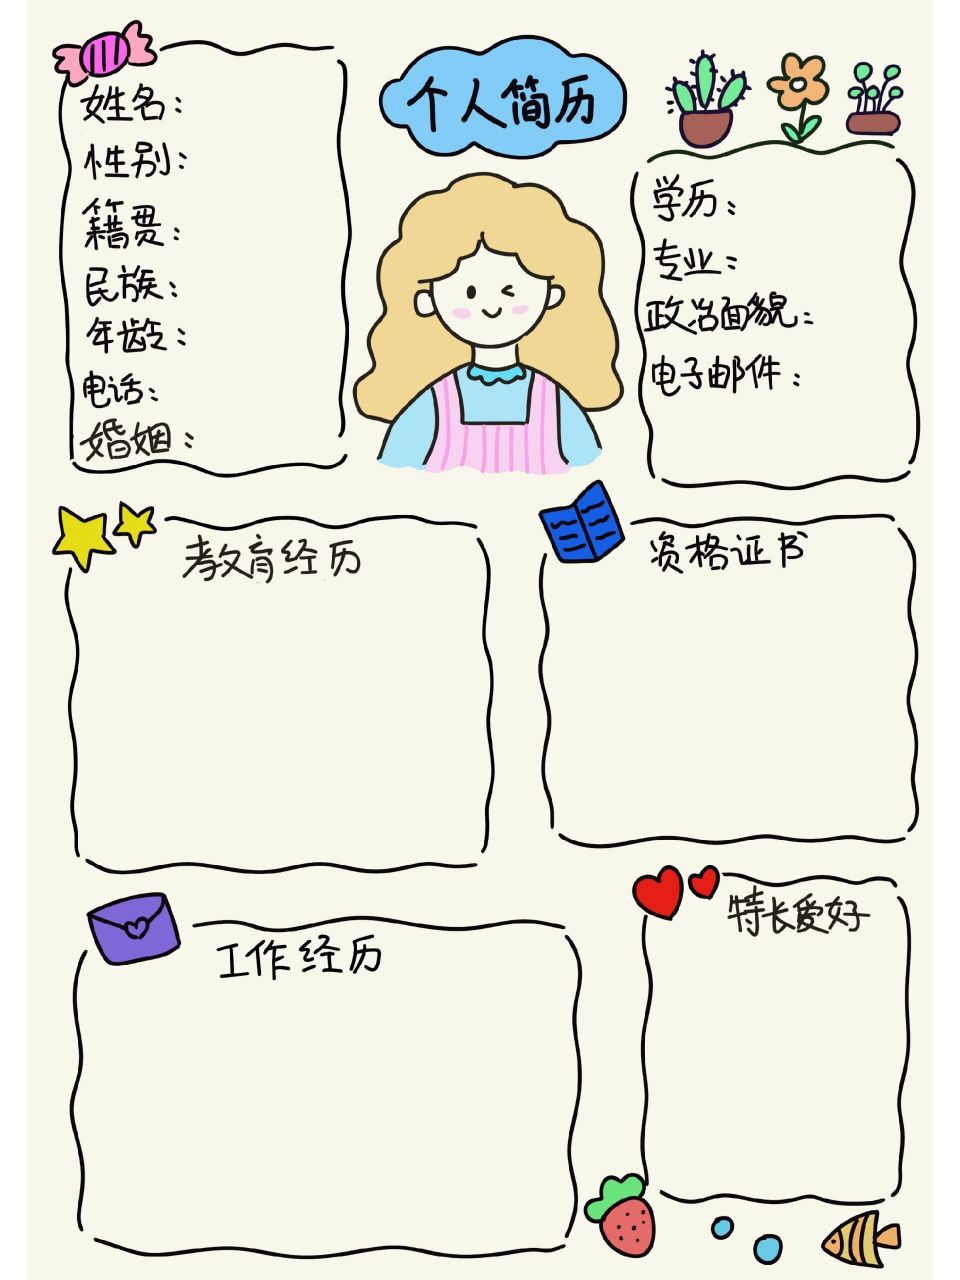 个人简历
姓名：
性别：
籍贯：
民族：
年龄：
电话：
婚姻：
学历：
专业：
政治面貌：
电子邮件：
教育经历
资格证书
工作经历
特长爱好